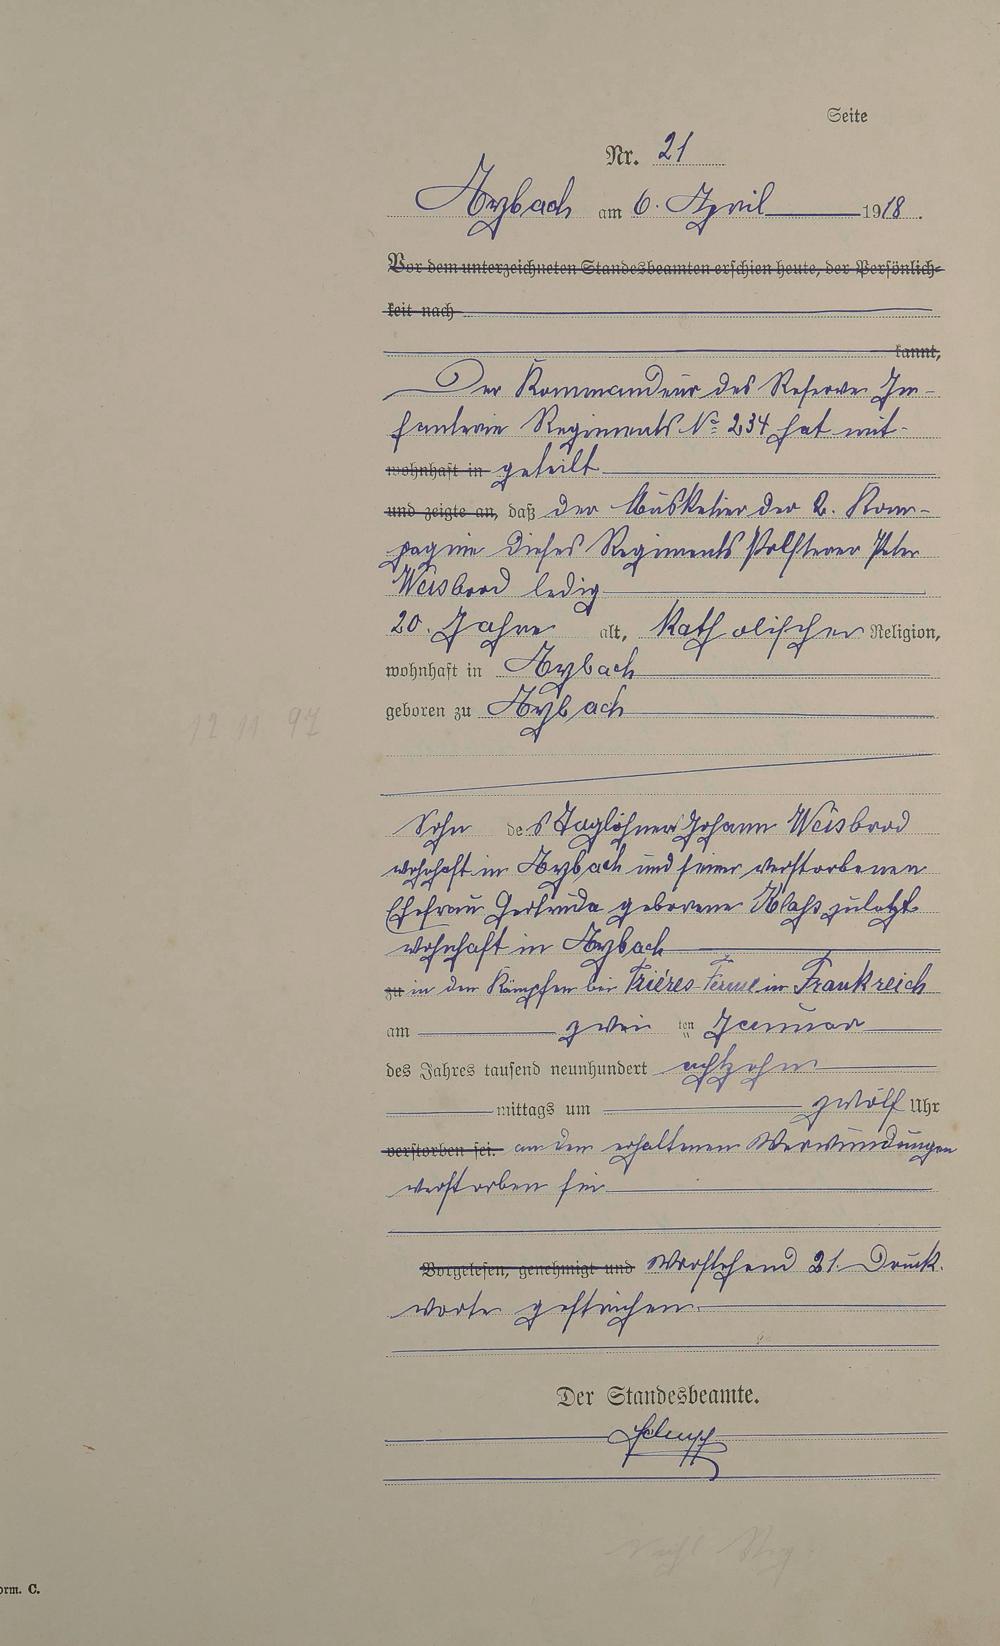 Seite
Nr. 21
Aÿbach am 6. April 1918.
Vor dem unterzeichneten Standesbeamten erschien heute, der Persönlich-
keit nach
kannt,
Der Kommandeur des Reserve In-
fanterie Regiments No 234 hat mit-
wohnhaft in geteilt
und zeigte an, daß der Musketier der 2. Kom-
pagnie dieses Regiments Polsterer Peter
Weisbrod ledig
20. Jahre alt, katholischer Religion,
wohnhaft in Aÿbach
geboren zu Aÿbach
12 11 97
Sohn des Taglöhners Johann Weisbrod
wohnhaft in Aÿbach und seiner verstorbenen
Ehefrau Gertruda geborene Klaß zuletzt
wohnhaft in Aÿbach
zu in den Kämpfen bei Trières-Ferme in Frankreich
am zwei ten Januar
des Jahres tausend neunhundert achtzehn
mittags um zwölf Uhr
verstorben sei. an den erhaltenen Verwundungen
verstorben sei
Vorgelesen, genehmigt und Vorstehend 21. Druck-
worte gestrichen.
Der Standesbeamte.
orm. C.